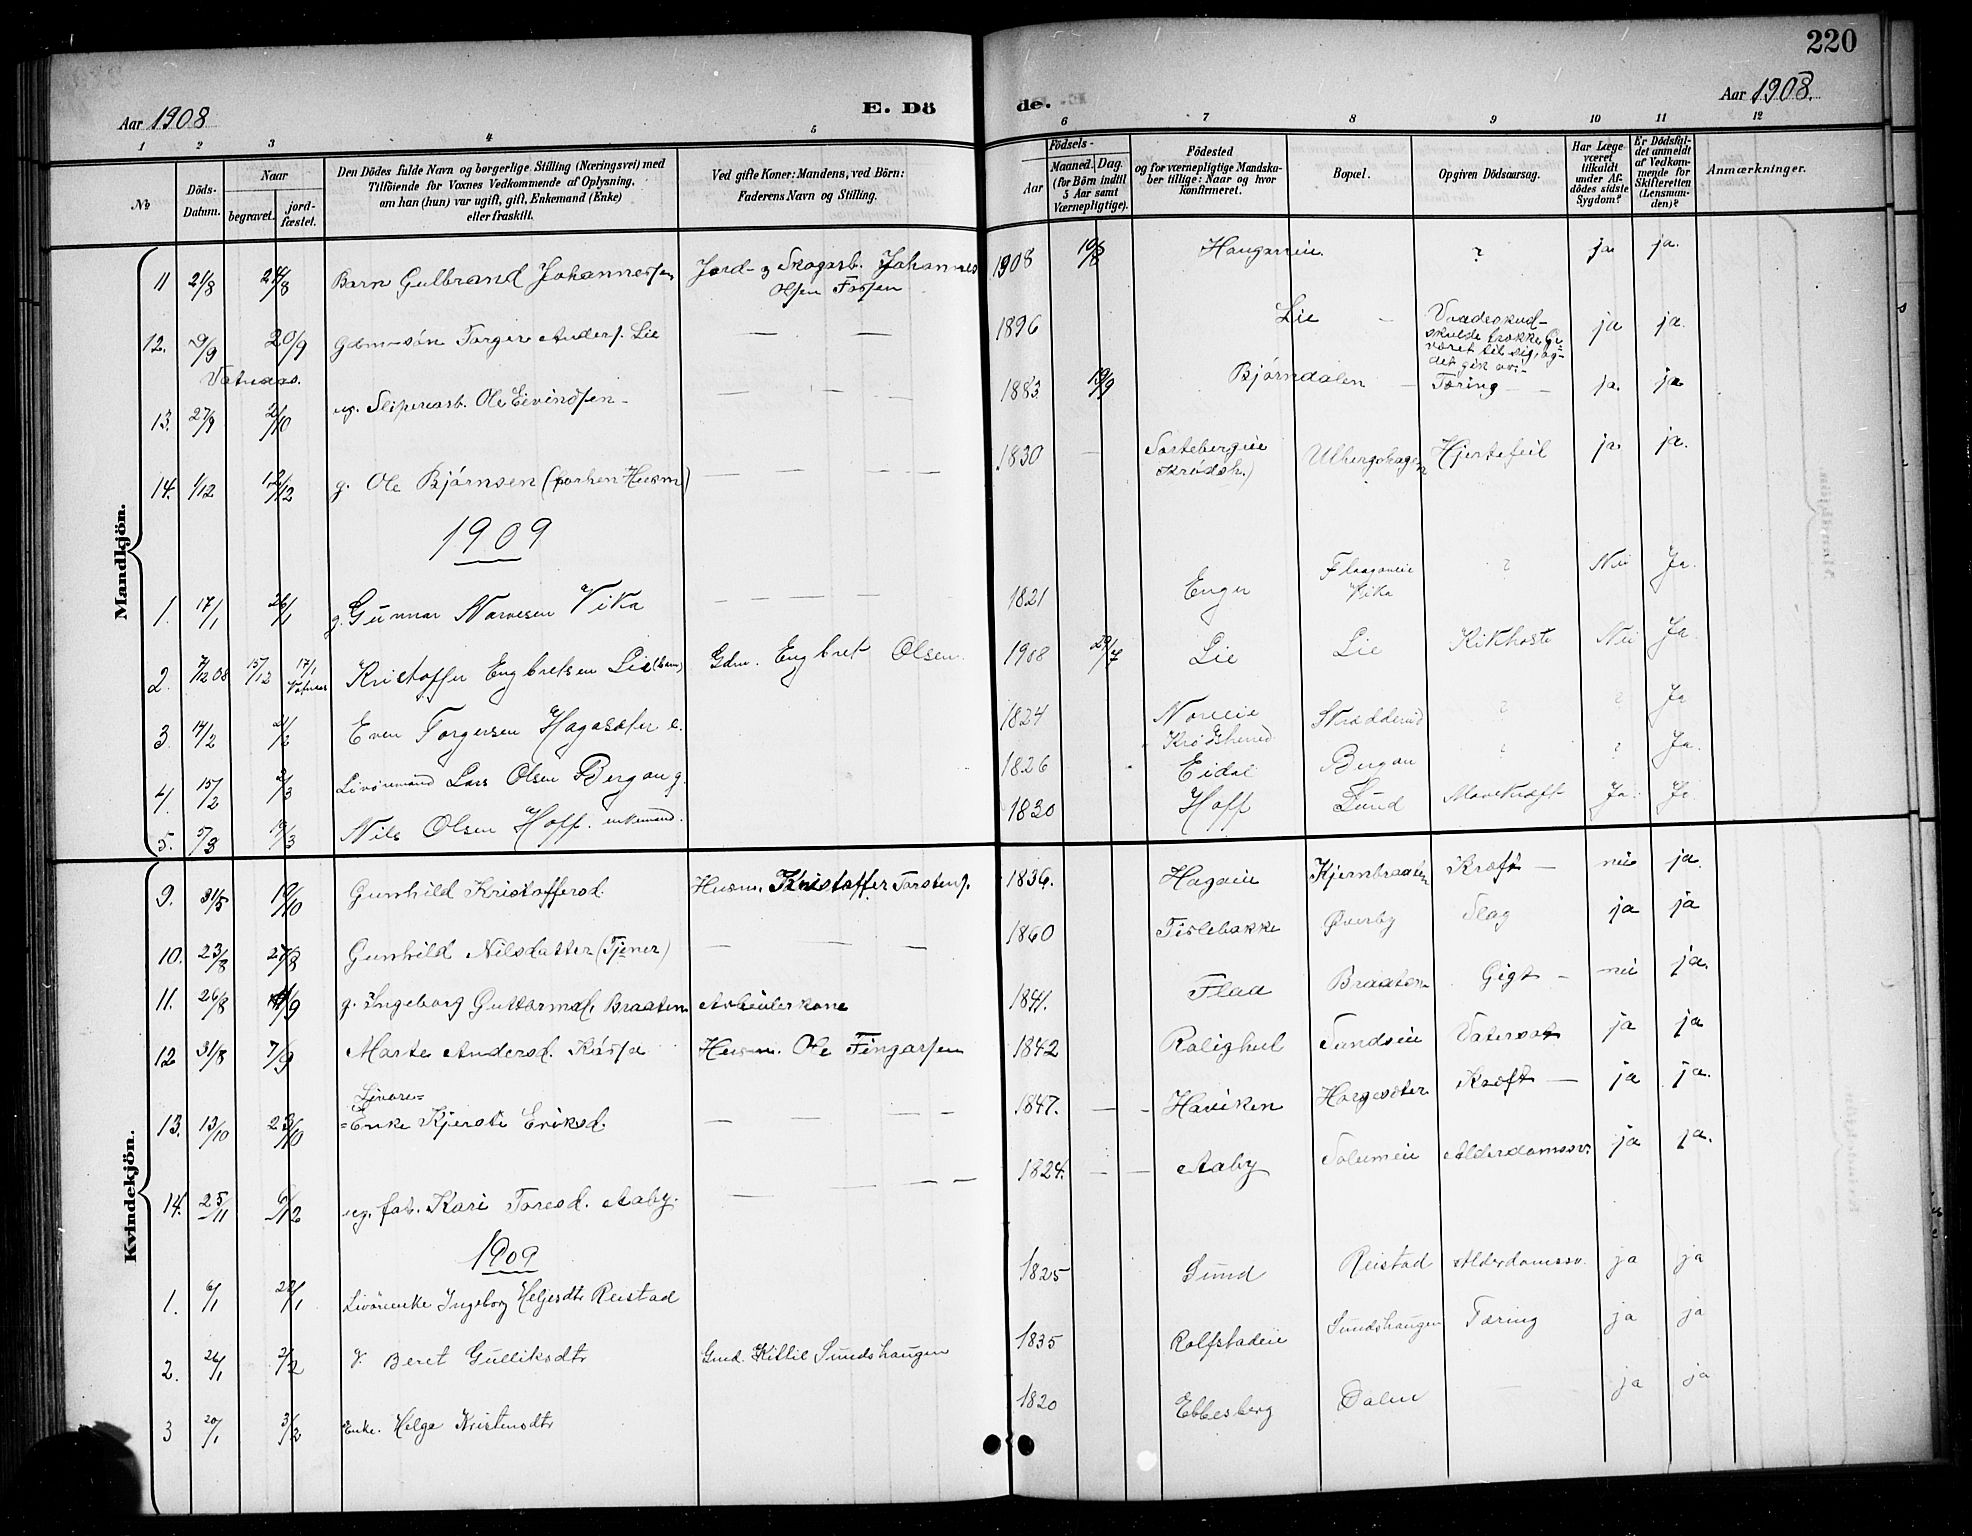 220
Aar 1908
E. Dö
de.
Aar 1908.
1 2 3 4 5
6 7 8 9 10 11 12
№
Döds-
Datum.
Naar
begravet.
jord-
fæstet.
Den Dödes fulde Navn og borgerlige Stilling (Næringsvei) med
Tilföiende for Voxnes Vedkommende af Oplysning,
om han (hun) var ugift, gift, Enkemand (Enke)
eller fraskilt.
Ved gifte Koner: Mandens, ved Börn:
Faderens Navn og Stilling.
Födsels-
Aar
Maaned. Dag.
(for Börn indtil
5 Aar samt
Værnepligtige).
Födested
og for værnepligtige Mandska-
ber tillige: Naar og hvor
konfirmeret.
Bopæl.
Opgiven Dödsaarsag.
Har Læge
været
tilkaldt
under Af-
dödes sidste
Sygdom?
Er Dödsfal-
det anmeldt
af Vedkom-
mende for
Skifteretten
(Lensman-
den)?
Anmærkninger.
Mandkjön.
11 21/8 24/8 Barn Gulbrand Johannessen Jord- og Skogarb. Johannes Olsen Fossen 1908 10/8 Hauganeie. ? ja ja.
12. 9/9 20/9 Gdm-søn Torger Anders. Lie — — 1896 Lie — Vaadeskud- skulde trække Ge- været til sig, og det gik av.- ja ja.
Vatnaas.
13. 27/9 2/10 ug. Sliperiarb. Ole Eivindsen — — — — 1883 19/9 Bjørndalen — Tæring — ja. ja
14. 1/12 12/12 g. Ole Bjørnsen (forhen Husm) — — — 1830 — Sorteberg eie Krødsh.) Ulbergshagen Hjertefeil ja. ja.
1909
1. 17/1 26/1 g. Gunnar Narvesen Vika — — — — 1821 Enger Flaganeie Vika ? Nei Ja.
2. 7/12 08 15/12 17/1 Vatnas Kristoffer Engbretsen Lie (barn) Gdm. Engbret Olsen. 1908 Lie Lie Kikhoste Nei Ja
3. 14/2 21/2 Even Torgersen Hagasæter e. 1824 Noreeie Krødsherred Skrædderud ? ? Ja
4. 15/2 2/3 Livøremand Lars Olsen Bergan g. 1826 Eidal Bergan ? ? Ja.
5. 5/3 Nils Olsen Hoff. enkemand. 1830 Hoff Lund Mavekræft Ja. Ja.
Kvindekjön.
9. 31/5 10/10 Gunhild Kristoffersd. Husm. Kristoffer Torstens. 1836. Hagaeie Kjernbraaten Kræft — nei ja.
10. 23/8 27/8 Gunhild Nilsdatter (Tjener) — — — 1860 Tislebakke Øverby Slag ja ja
11. 26/8 g. Ingeborg Guttormsd. Braaten Arbeiderkone 1841. Flaa Braaten Gigt — nei ja.
12 31/8 7/9 Marte Andersd. Husm. Ole Fingarsen 1842 Rolighul Sundseie Vatersot ja ja
13. 13/10 23/10 Livøre= =Enke Kjersti Eriksd. — — — — 1847. — - Haviken Hagesæter Kræft — ja ja.
14. 25/11 6/12 ug. fat. Kari Toresd. Aaby. — — — — 1824. — — Aaby Solumeie Alderdomssv. ja ja.
1909
1. 6/1 22/1 Livøreenke Ingeborg Heljesdtr Reistad 1825 Sund Reistad Alderdomssv. ja ja
2. 26/1 2/2 Beret Gulliksdtr Gmd. Kittil Sundshaugen 1835 Rolfstadeie Sundshaugen Tæring ja ja
3 20/1 3/2 Enke. Helga Kristensdtr 1820 Ebbesberg Dalen — ja ja